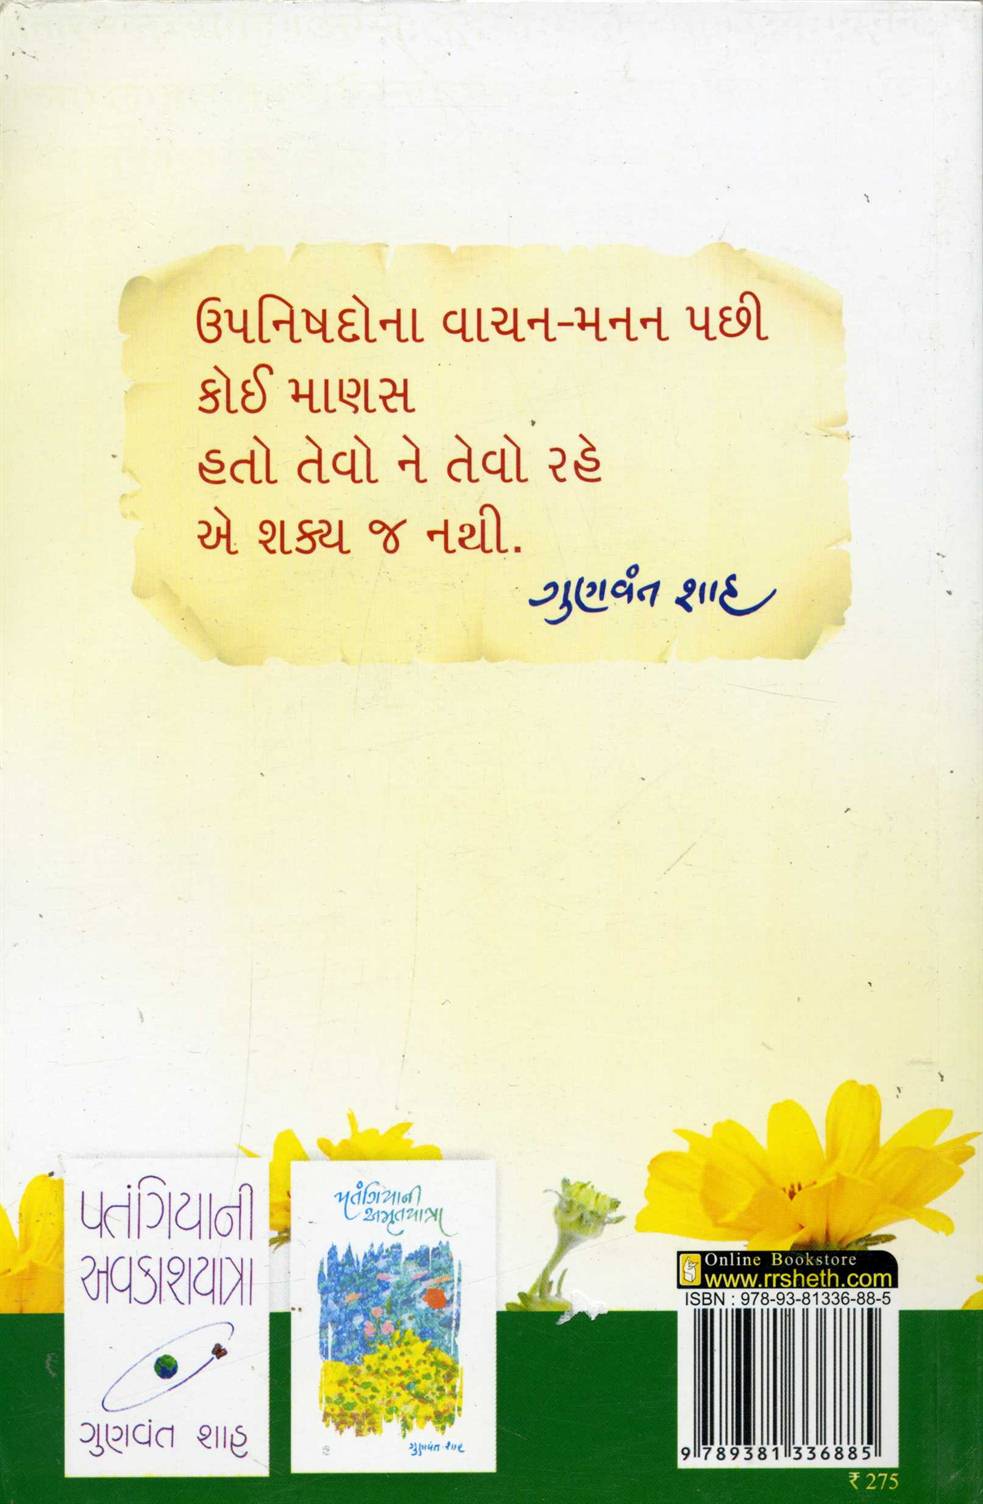 ઉપનિષદોના વાચન-મનન પછી
કોઈ માણસ
હતો તેવો ને તેવો રહે
એ શક્ય જ નથી.
ગુણવંત શાહ
પતંગિયાની
અવકાશયાત્રા
ગુણવંત શાહ
પતંગિયાની
અમૃતયાત્રા
ગુણવંત શાહ
Online Bookstore
www.rrsheth.com
ISBN : 978-93-81336-88-5
9 789381 336885
₹ 275